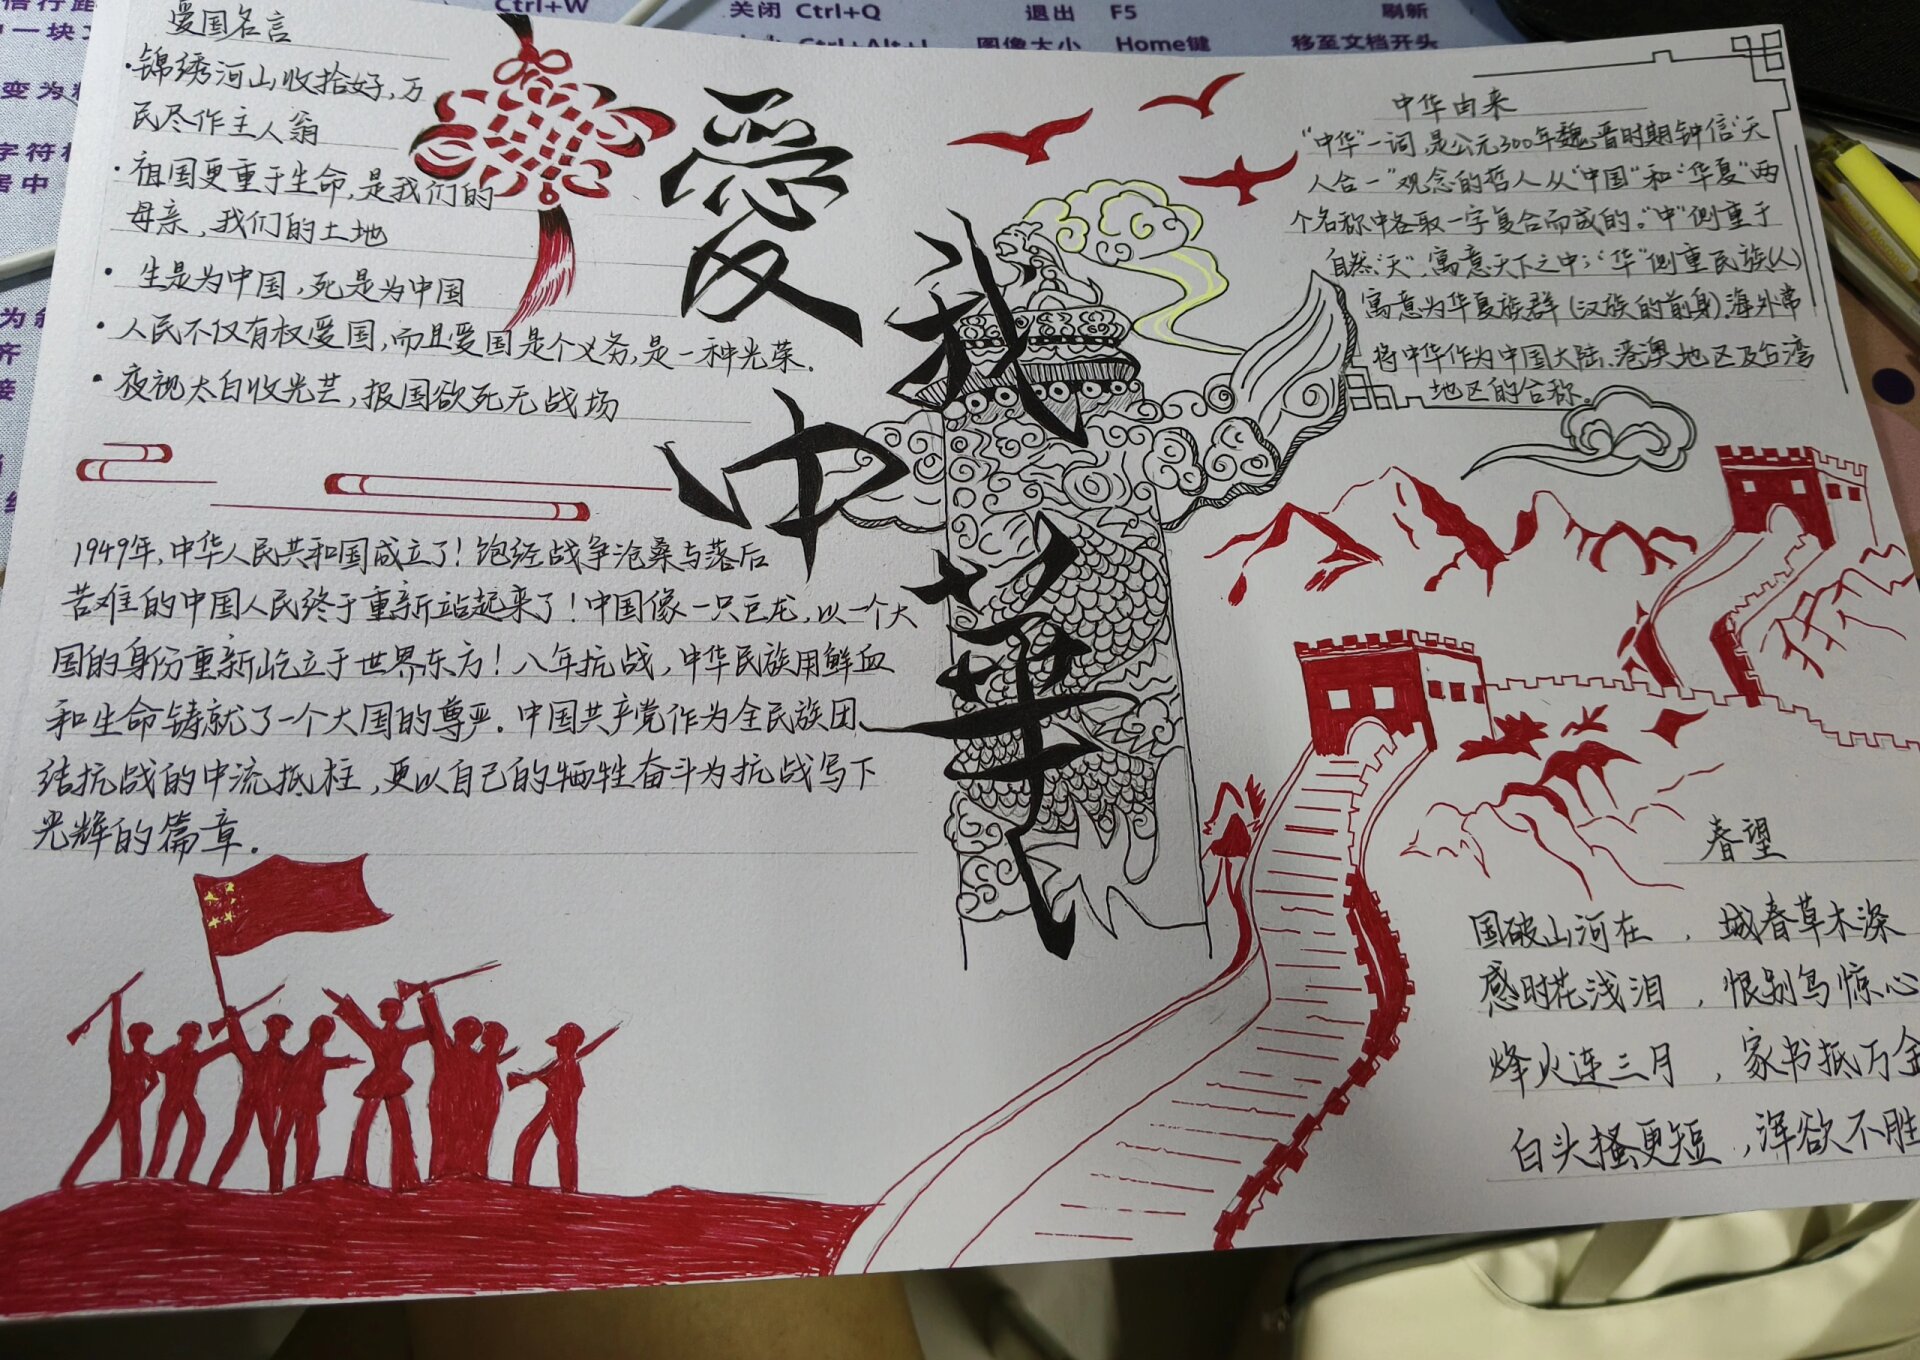 关闭 Ctrl+Q
Ctrl+W
退出 F5
刷新
图像大小 Home键
移至文档开头
爱国名言
·锦绣河山收拾好,万
民尽作主人翁
·祖国更重于生命,是我们的
母亲,我们的土地
·生是为中国,死是为中国
·人民不仅有权爱国,而且爱国是个义务,是一种光荣.
·夜视太白收光芒,报国欲死无战场
爱我中华
中华由来
“中华”一词,是公元300年魏晋时期钟信“天
人合一”观念的哲人从“中国”和“华夏”两
个名称中各取一字复合而成的。“中”侧重于
自然“天”,寓意天下之中;“华”侧重民族(人)
寓意为华夏族群(汉族的前身)海外常
将中华作为中国大陆、港澳地区及台湾
地区的合称。
1949年,中华人民共和国成立了!饱经战争沧桑与落后
苦难的中国人民终于重新站起来了!中国像一只巨龙,以一个大
国的身份重新屹立于世界东方!八年抗战,中华民族用鲜血
和生命铸就了一个大国的尊严.中国共产党作为全民族团
结抗战的中流抵柱,更以自己的牺牲奋斗为抗战写下
光辉的篇章.
春望
国破山河在,城春草木深
感时花浅泪,恨别鸟惊心
烽火连三月,家书抵万金
白头搔更短,浑欲不胜